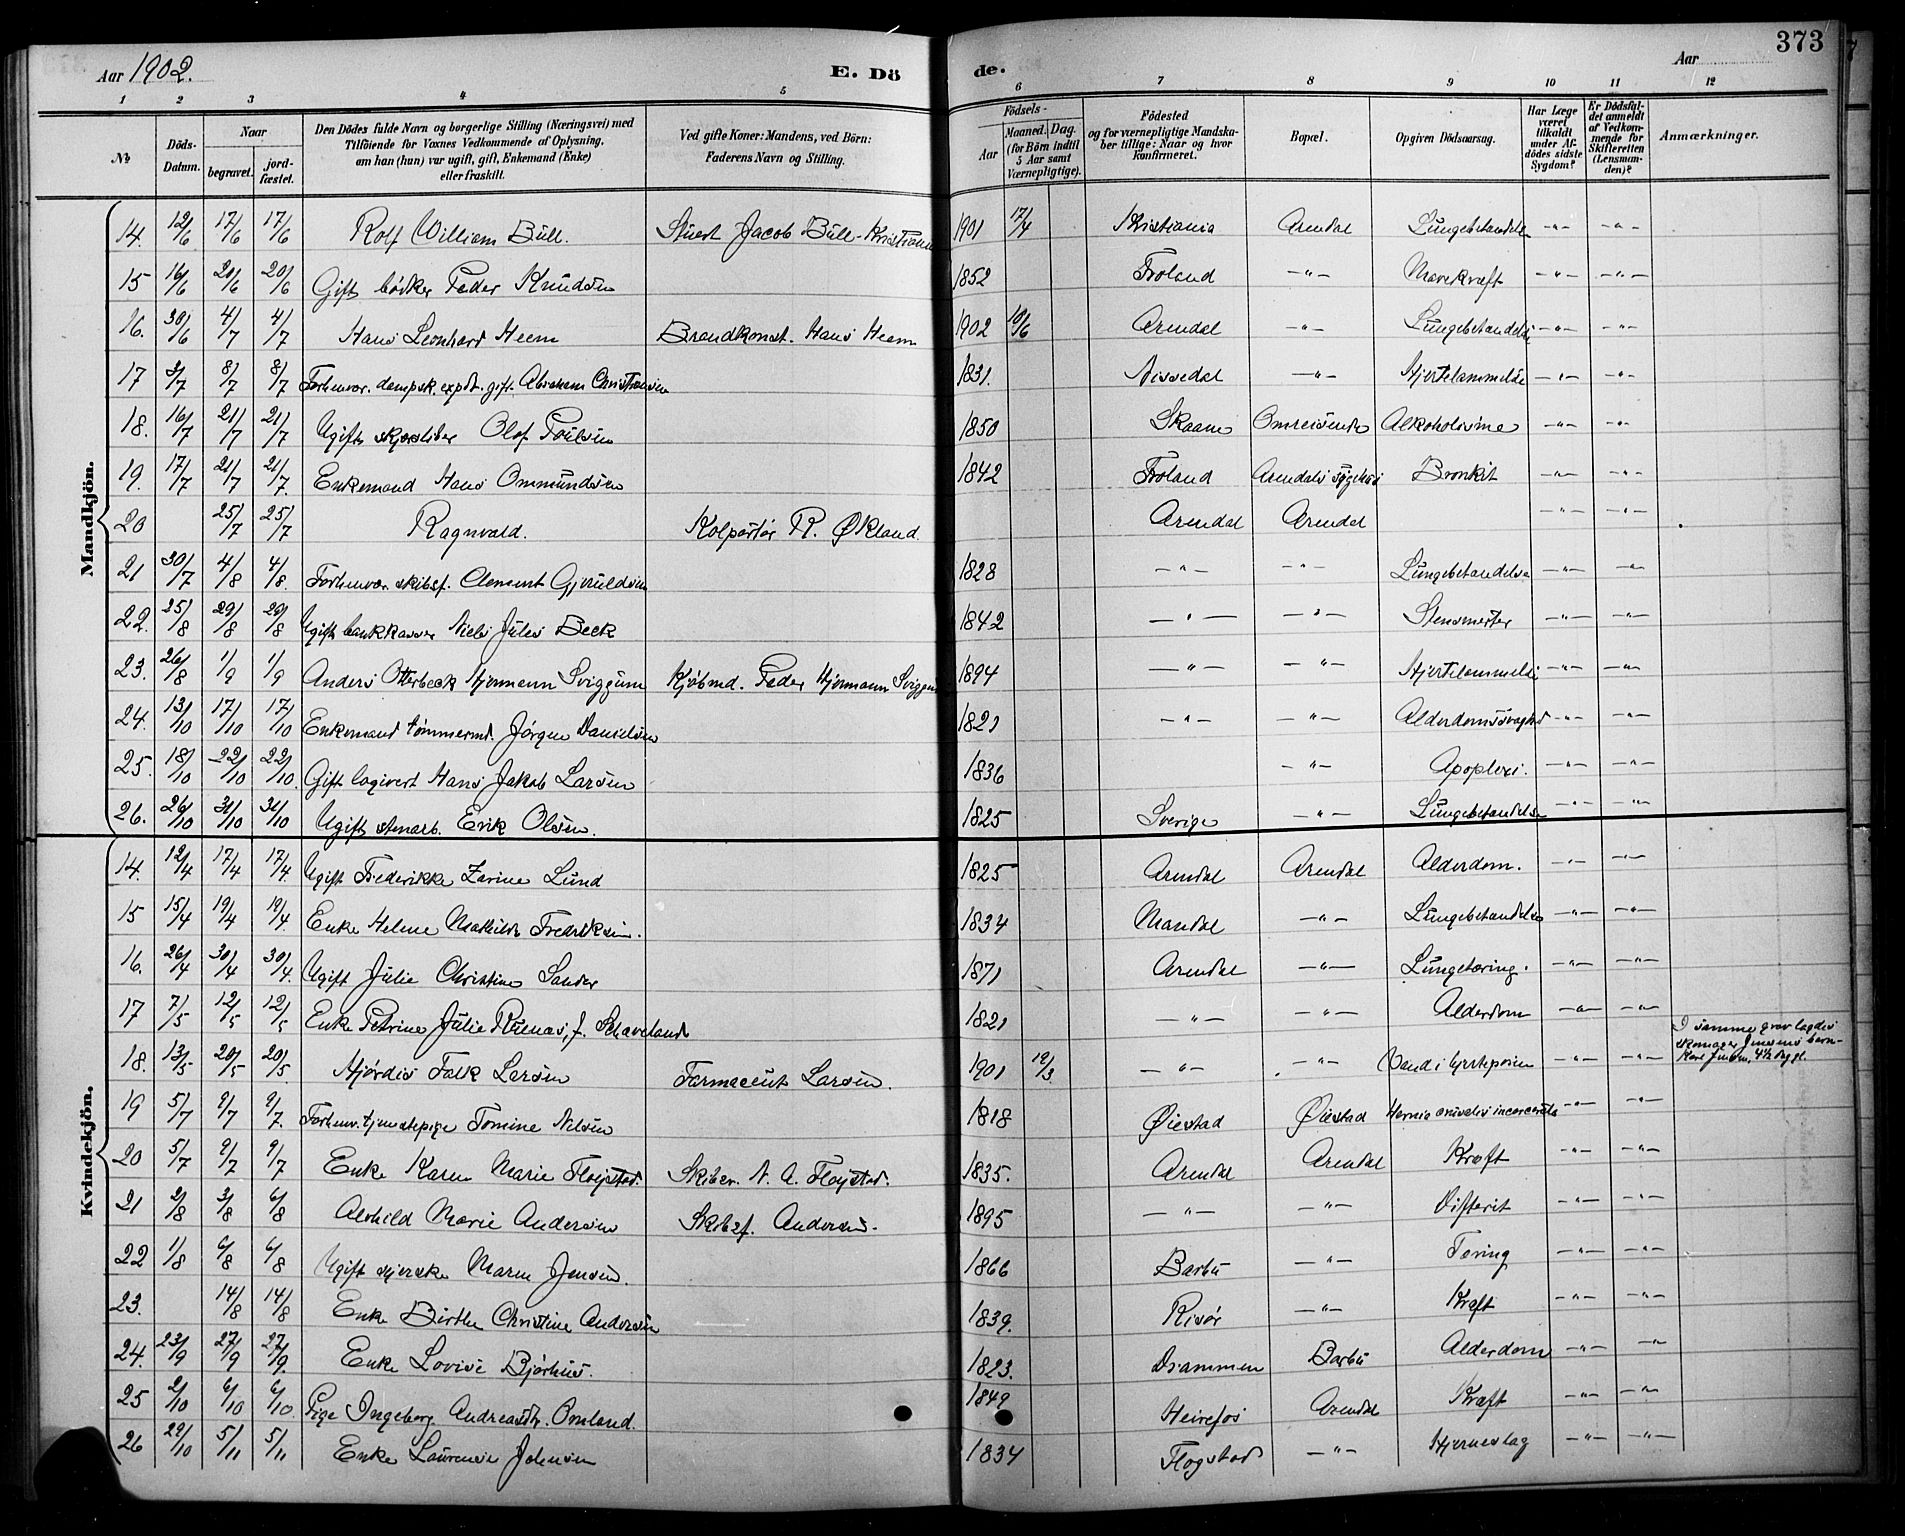 Aar 1902.
E. Dö
de.
Aar
373
1 2 3 4 5 6 7 8 9 10 11 12
No
Döds-Datum.
Naar
begravet.
jordfæstet.
Den Dödes fulde Navn og borgerlige Stilling (Næringsvei) med
Tilföiende for Voxnes Vedkommende af Oplysning,
om han (hun) var ugift, gift, Enkemand (Enke)
eller fraskilt.
Ved gifte Koner: Mandens, ved Börn:
Faderens Navn og Stilling.
Födsels-
Aar
Maaned. Dag.
(for Börn indtil
5 Aar samt
Værnepligtige).
Födested
og for værnepligtige Mandskaber tillige: Naar og hvor
konfirmeret.
Bopæl.
Opgiven Dödsaarsag.
Har Læge
været
tilkaldt
under Afdödes sidste
Sygdom?
Er Dödsfaldet anmeldt
af Vedkommende for
Skifteretten
(Lensmanden)?
Anmærkninger.
Mandkjön.
14. 12/6 17/6 17/6 Rolf William Bull. Stuert Jacob Bull - Kristiania 1901 17/4 Kristiania Arendal Lungebetændelse -"- -"-
15 16/6 20/6 20/6 Gift bödker Peder Knudsen 1852 Froland -"- Mavekræft -"- -"-
16. 30/6 4/7 4/7 Hans Leonhard Heem Brandkonst. Hans Heem 1902 10/6 Arendal -"- Lungebetændelse -"- -"-
17 8/7 8/7 Forhenvær. dampsk.expdt. gift. Abraham Christiansen 1831. Nissedal -"- Hjertelammelse -"- -"-
18. 16/7 21/7 21/7 Ugift skjærsliber Olof Poulsen 1850 Skaane Omreisende Alkoholisme -"- -"-
19. 17/7 21/7 21/7. Enkemand Hans Ommundsen 1842 Froland Arendals sygehus Bronkit -"- -"-
20 25/7 25/7 Ragnvald. Kolportör R. Økland. Arendal Arendal -"- -"-
21 30/7 4/8 4/8. Forhenvær skibsf. Clement Gjeruldsen 1828 -"- -"- Lungebetændelse -"- -"-
22. 25/8 29/8 29/8 Ugift bankkasser Niels Julius Beck 1842 -"- -"- Stensmerter -"- -"-
23. 26/8 1/9 1/9 Anders Otterbeck Hjermann Sviggum Kjöbmd. Peder Hjermann Sviggum 1894 -"- -"- Hjertelammelse -"- -"-
24. 13/10 17/10 17/10 Enkemand tömmermd. Jörgen Danielsen 1821 -"- -"- Alderdomssvaghed -"- -"-
25. 18/10 22/10 22/10. Gift logivert Hans Jakob Larsen 1836 -"- Apoplexi. -"- -"-
26. 26/10 31/10 31/10 Ugift stenarb. Erik Olsen. 1825 Sverige -"- Lungebetændelse -"- -"-
Kvindekjön.
14. 12/4 17/4 17/4. Ugift Frederikke Zarine Lund 1825 Arendal Arendal Alderdom. -"- -"-
15 15/4 19/4 19/4 Enke Helene Mathilde Fredriksen. 1834 Mandal -"- Lungebetændelse -"- -"-
16. 26/4 30/4 30/4. Ugift Julie Christine Sander 1871 Arendal -"- Lungetæring. -"- -"-
17 7/5 12/5 12/5 Enke Petrine Julie 1821 -"- -"- Alderdom -"- -"-
18. 13/5 20/5 20/5. Hjördis Falk Larsen Farmaceut Larsen. 1901 19/3 -"- -"- Vand i -"- -"- I samme grav lagdes skomager Jensens barn - Kare Jensen, 4½ Dg gl.
19 5/7 9/7 9/7. Forhenv. tjenestepige Tomine Nilsen 1818 Øiestad Øiestad Hernia incarcerata -"- -"-
20 5/7 9/7 9/7 Enke Karen Marie Flöystad. Skibsr. N. A. Flöystad. 1835. Arendal Arendal Kræft -"- -"-
21 2/8 3/8 6/8 Alvhild Marie Andersen Skibsf. Andersen. 1895 -"- -"- Difterit -"- -"-
22 1/8 6/8 6/8 Ugift syerske Maren Jensen. 1866 Barbu -"- Tæring -"- -"-
23. 14/8 14/8 Enke Birthe Christine Andersen 1839. Risör -"- Kræft -"- -"-
24. 23/9 27/9 27/9. Enke Lovise Bjørhus. 1823. Drammen Barbu Alderdom -"- -"-
25 2/10 6/10 6/10. Pige Ingeborg Andreasdtr. Omland. 1849 Heirefos Arendal Kræft -"- -"-
26 29/10 5/11 5/11 Enke Laurense Johnsen 1834 Flogstad -"- Hjerneslag -"- -"-